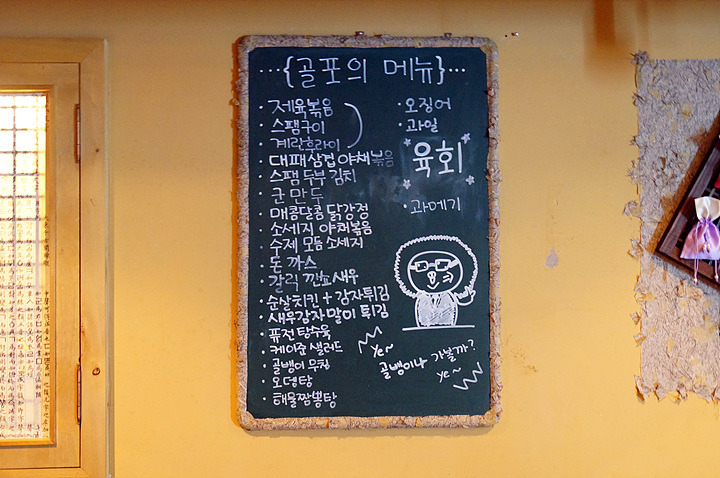 ...{골포의 메뉴}...
· 제육볶음
· 스팸구이
· 계란후라이
· 대패삼겹 야채볶음
· 스팸 두부 김치
· 군만두
· 매콤달콤 닭강정
· 소세지 야채볶음
· 수제 모듬 소세지
· 돈까스
· 갈릭 깐쇼새우
· 순살치킨 + 감자튀김
· 새우감자말이 튀김
· 퓨전 탕수육
· 케이준 샐러드
· 골뱅이 무침
· 오뎅탕
· 해물짬뽕탕
· 오징어
· 과일
육회
· 과메기
ye~
골뱅이나 가볼까?
ye~